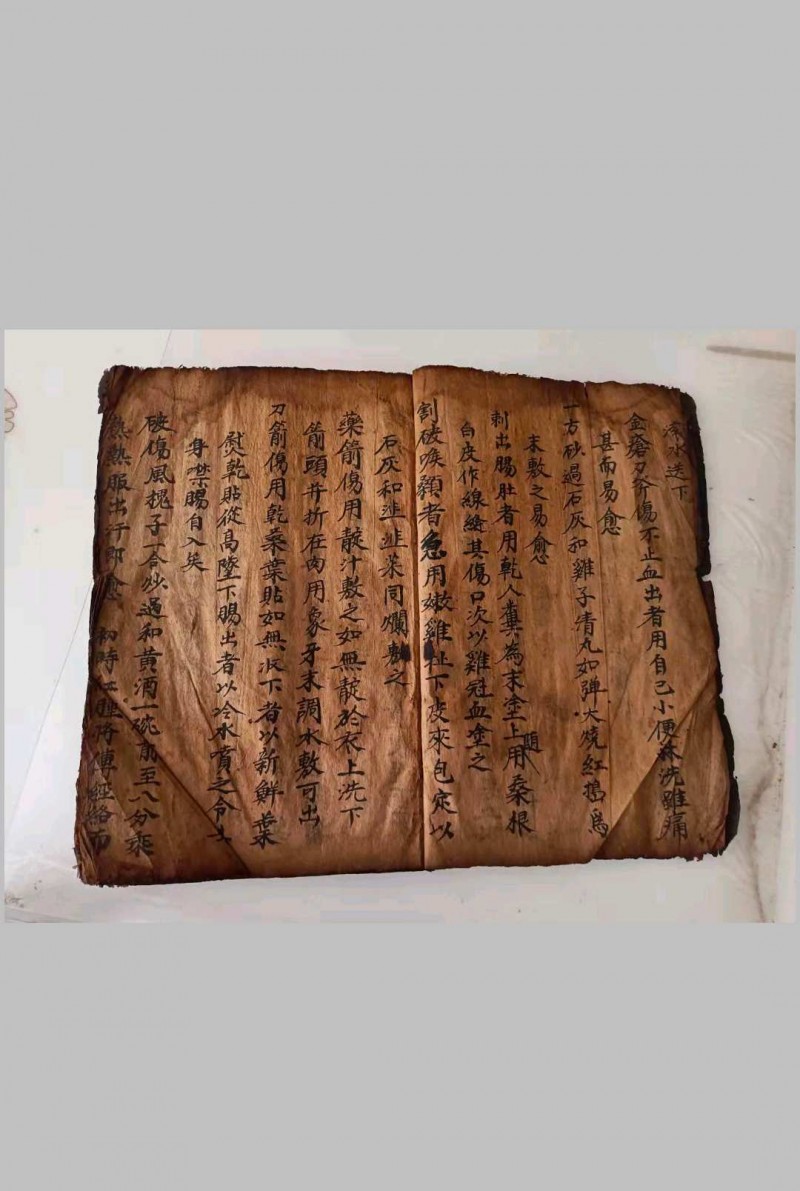 滚水送下
金瘡刀斧傷不止血出者用自己小便淋洗雖痛
甚而易愈
一方砂過石灰和雞子清丸如弹大燒紅搗為
末敷之易愈
刺出腸肚者用乾人糞為末塗上用桑根
白皮作線縫其傷口次以雞冠血塗之
割破喉顙者急用嫩雞扯下皮來包定以
石灰和韮韮菜同爛敷之
藥箭傷用靛汁敷之如無靛於衣上洗下
箭頭并折在肉用象牙末調水敷可出
刀箭傷用乾桑葉貼如無水下者以新鮮葉
熨乾貼從高墜下腸出者以冷水噴之令
身噤腸自入矣
破傷風槐子一合炒過和黄酒一碗前至八分乘
熱熱服出汗即愈 初時 經絡而